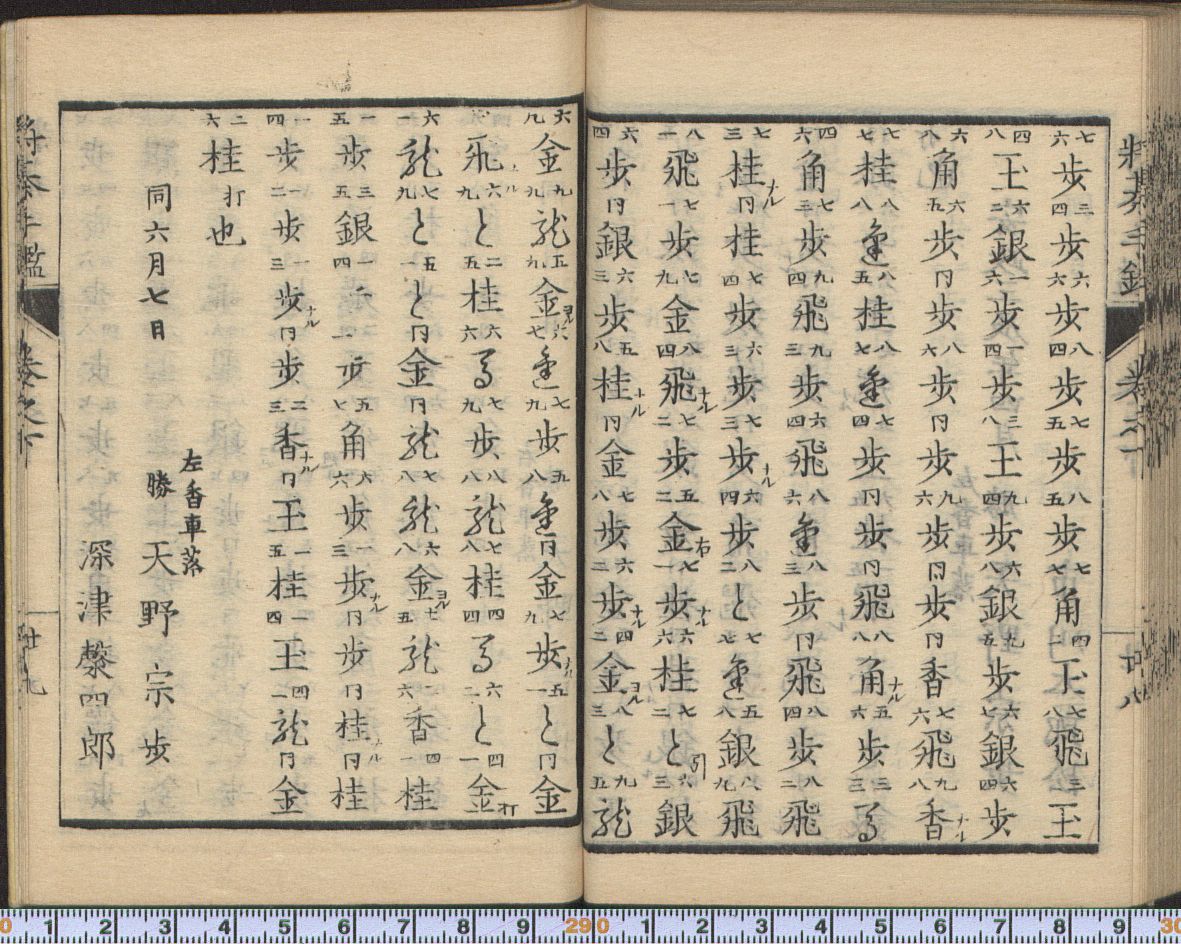 七六歩三四歩六六歩八四歩七五歩八五歩七七角四二王六八飛三二王
四八王六二銀一六歩一四歩三八王九四歩六八銀九五歩六七銀六四歩
六八角六五歩同歩八六歩同歩九六歩同歩同香七六飛九八香ナル
七七桂八八金八五桂八七金七四歩同歩同飛八八角ナル五六歩三三馬
四六角七三歩九四飛九三歩六四飛八六金八三歩同飛八四歩八二飛
七三桂ナル同桂七四歩六三歩七三歩ナル六四歩八二と七七金五八銀八九飛
八一飛七一歩七九金八四飛ナル七二歩五二金右七一歩ナル六六桂七二と引六三銀
六四歩同銀六三歩五八桂ナル同金七八歩六二歩ナル四二金ヨル八三と九五龍
将棊手鑑 巻之下 廿八
六九金九九龍五九金ヨル六七金七九歩五八金同金七九歩ナル五一と同金
飛ナル六九と二五桂六六馬七九歩八八龍七八桂四四馬六二と四一金打
六一龍七九と五一と同金同龍七八龍六八金ヨル七五龍二六香四一桂
一五歩三五銀一四歩一二歩五七角六六歩一三歩ナル同歩同桂ナル同桂
一四歩一二歩一三歩ナル同歩二三香ナル同王一五桂一四王四二龍同金
二六桂打也
同六月七日
左香車落
勝 天野宗歩
深津黎四郎
将棊手鑑 巻之下 廿九